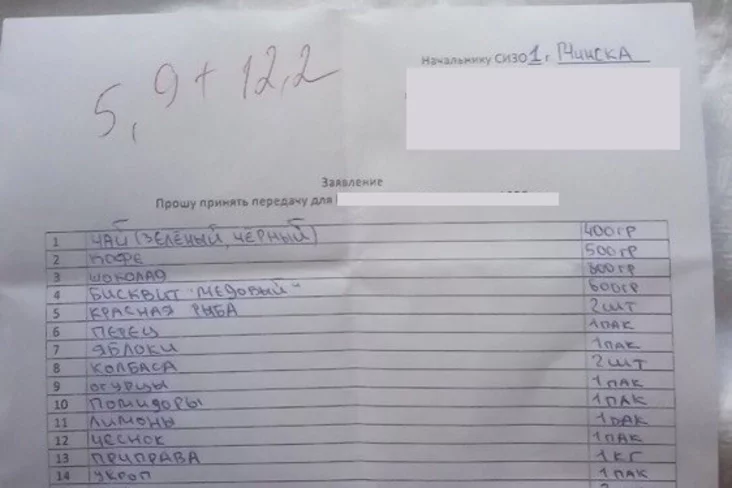 5,9+12,2
Начальнику СИЗО 1 г Минска
Заявление
Прошу принять передачу для
1 ЧАЙ (ЗЕЛЁНЫЙ, ЧЁРНЫЙ) 400ГР
2 КОФЕ 500ГР
3 ШОКОЛАД 800ГР
4 БИСКВИТ "МЕДОВЫЙ" 600ГР
5 КРАСНАЯ РЫБА 2ШТ
6 ПЕРЕЦ 1ПАК
7 ЯБЛОКИ 1ПАК
8 КОЛБАСА 2ШТ
9 ОГУРЦЫ 1ПАК
10 ПОМИДОРЫ 1ПАК
11 ЛИМОНЫ 1ПАК
12 ЧЕСНОК 1ПАК
13 ПРИПРАВА 1КГ
14 УКРОП 1ПАК